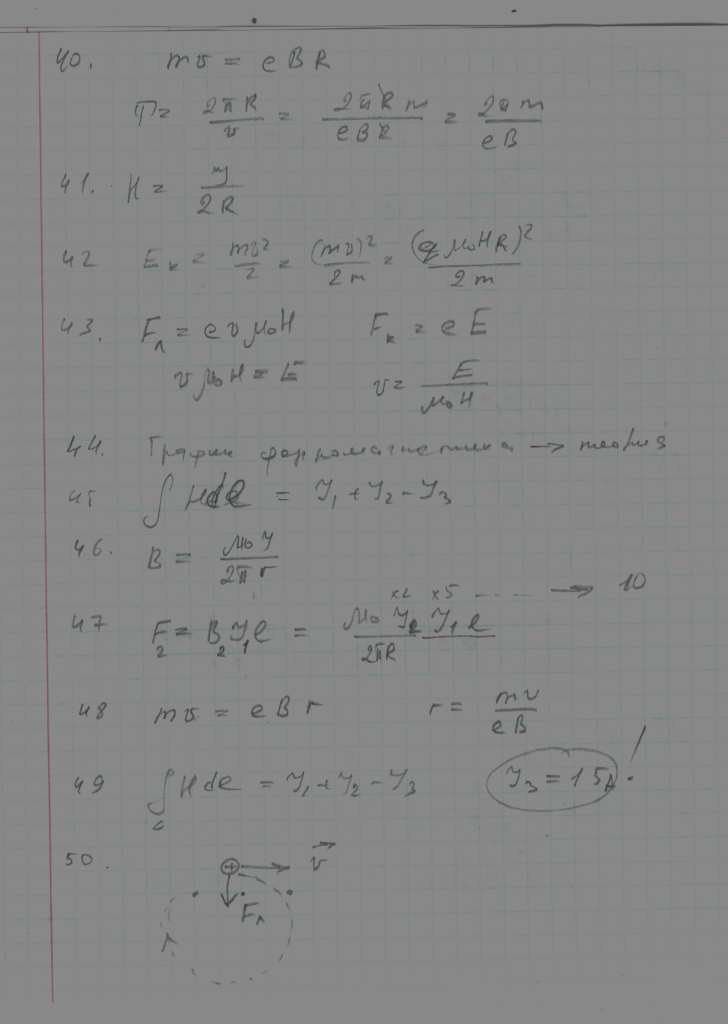 40. mv = eBR
T = 2πR/v = 2πRm/eBR = 2πm/eB
41. H = J/2R
42 Eк = mv²/2 = (mv)²/2m = (qμ₀HR)²/2m
43. Fл = evμ₀H Fк = eE
vμ₀H = E v = E/μ₀H
44. График ферромагнетика → теория
45 ∫Hdl = J₁ + J₂ - J₃
46. B = μ₀J/2πr
x2 x5 ---- → 10
47 F₂ = B₂J₁l = μ₀J₂J₁l/2πR
48 mv = eBr r = mv/eB
49 ∫Hdl = J₁ + J₂ - J₃ J₃ = 15A !
50. + v
Fл